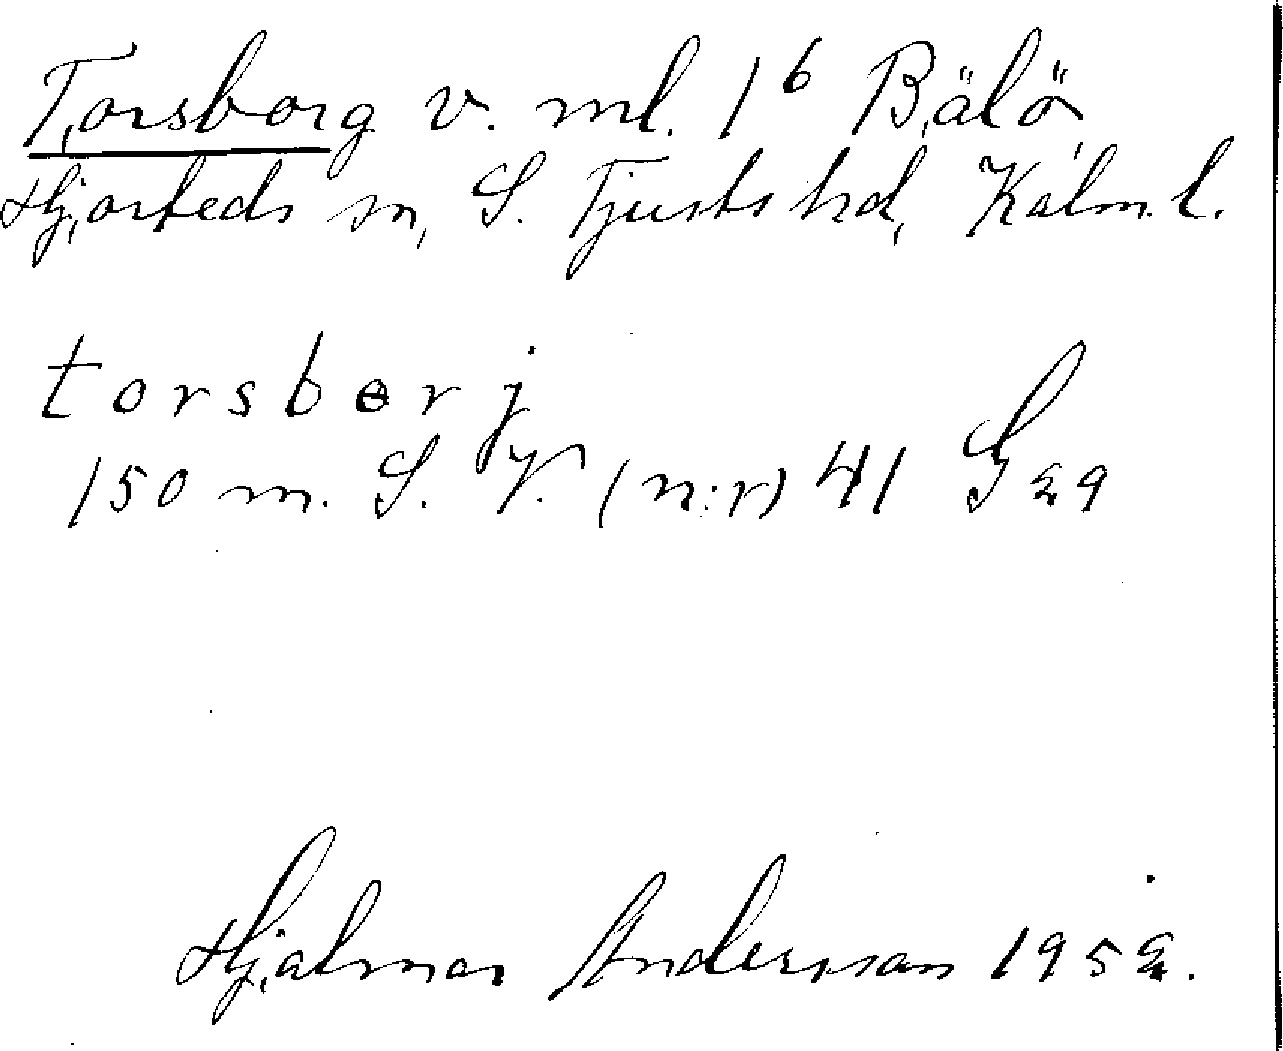 Torsborg v. ml. 1⁶ Bälö
Hjorteds sn, S. Tjusts hd, Kalm. l.
torsbɵrj
150 m. S. V. (n:r) 41 G 29
Hjalmar Andersson 1952.